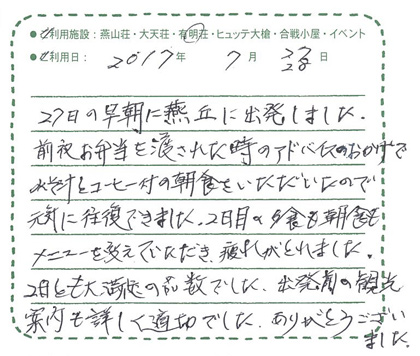 ●ご利用施設：燕山荘・大天荘・有明荘・ヒュッテ大槍・合戦小屋・イベント
●ご利用日： 2017年 7月 27 28 日
27日の早朝に燕丘に出発しました。
前夜お弁当を渡された時のアドバイスのおかげで
みそ汁とコーヒー付の朝食をいただいたので
元気に往復できました。2日目の夕食も朝食も
メニューを変えていただき、疲れがとれました。
2日とも大満足の品数でした。出発前の観光
案内も詳しく適切でした。ありがとうござい
ました。